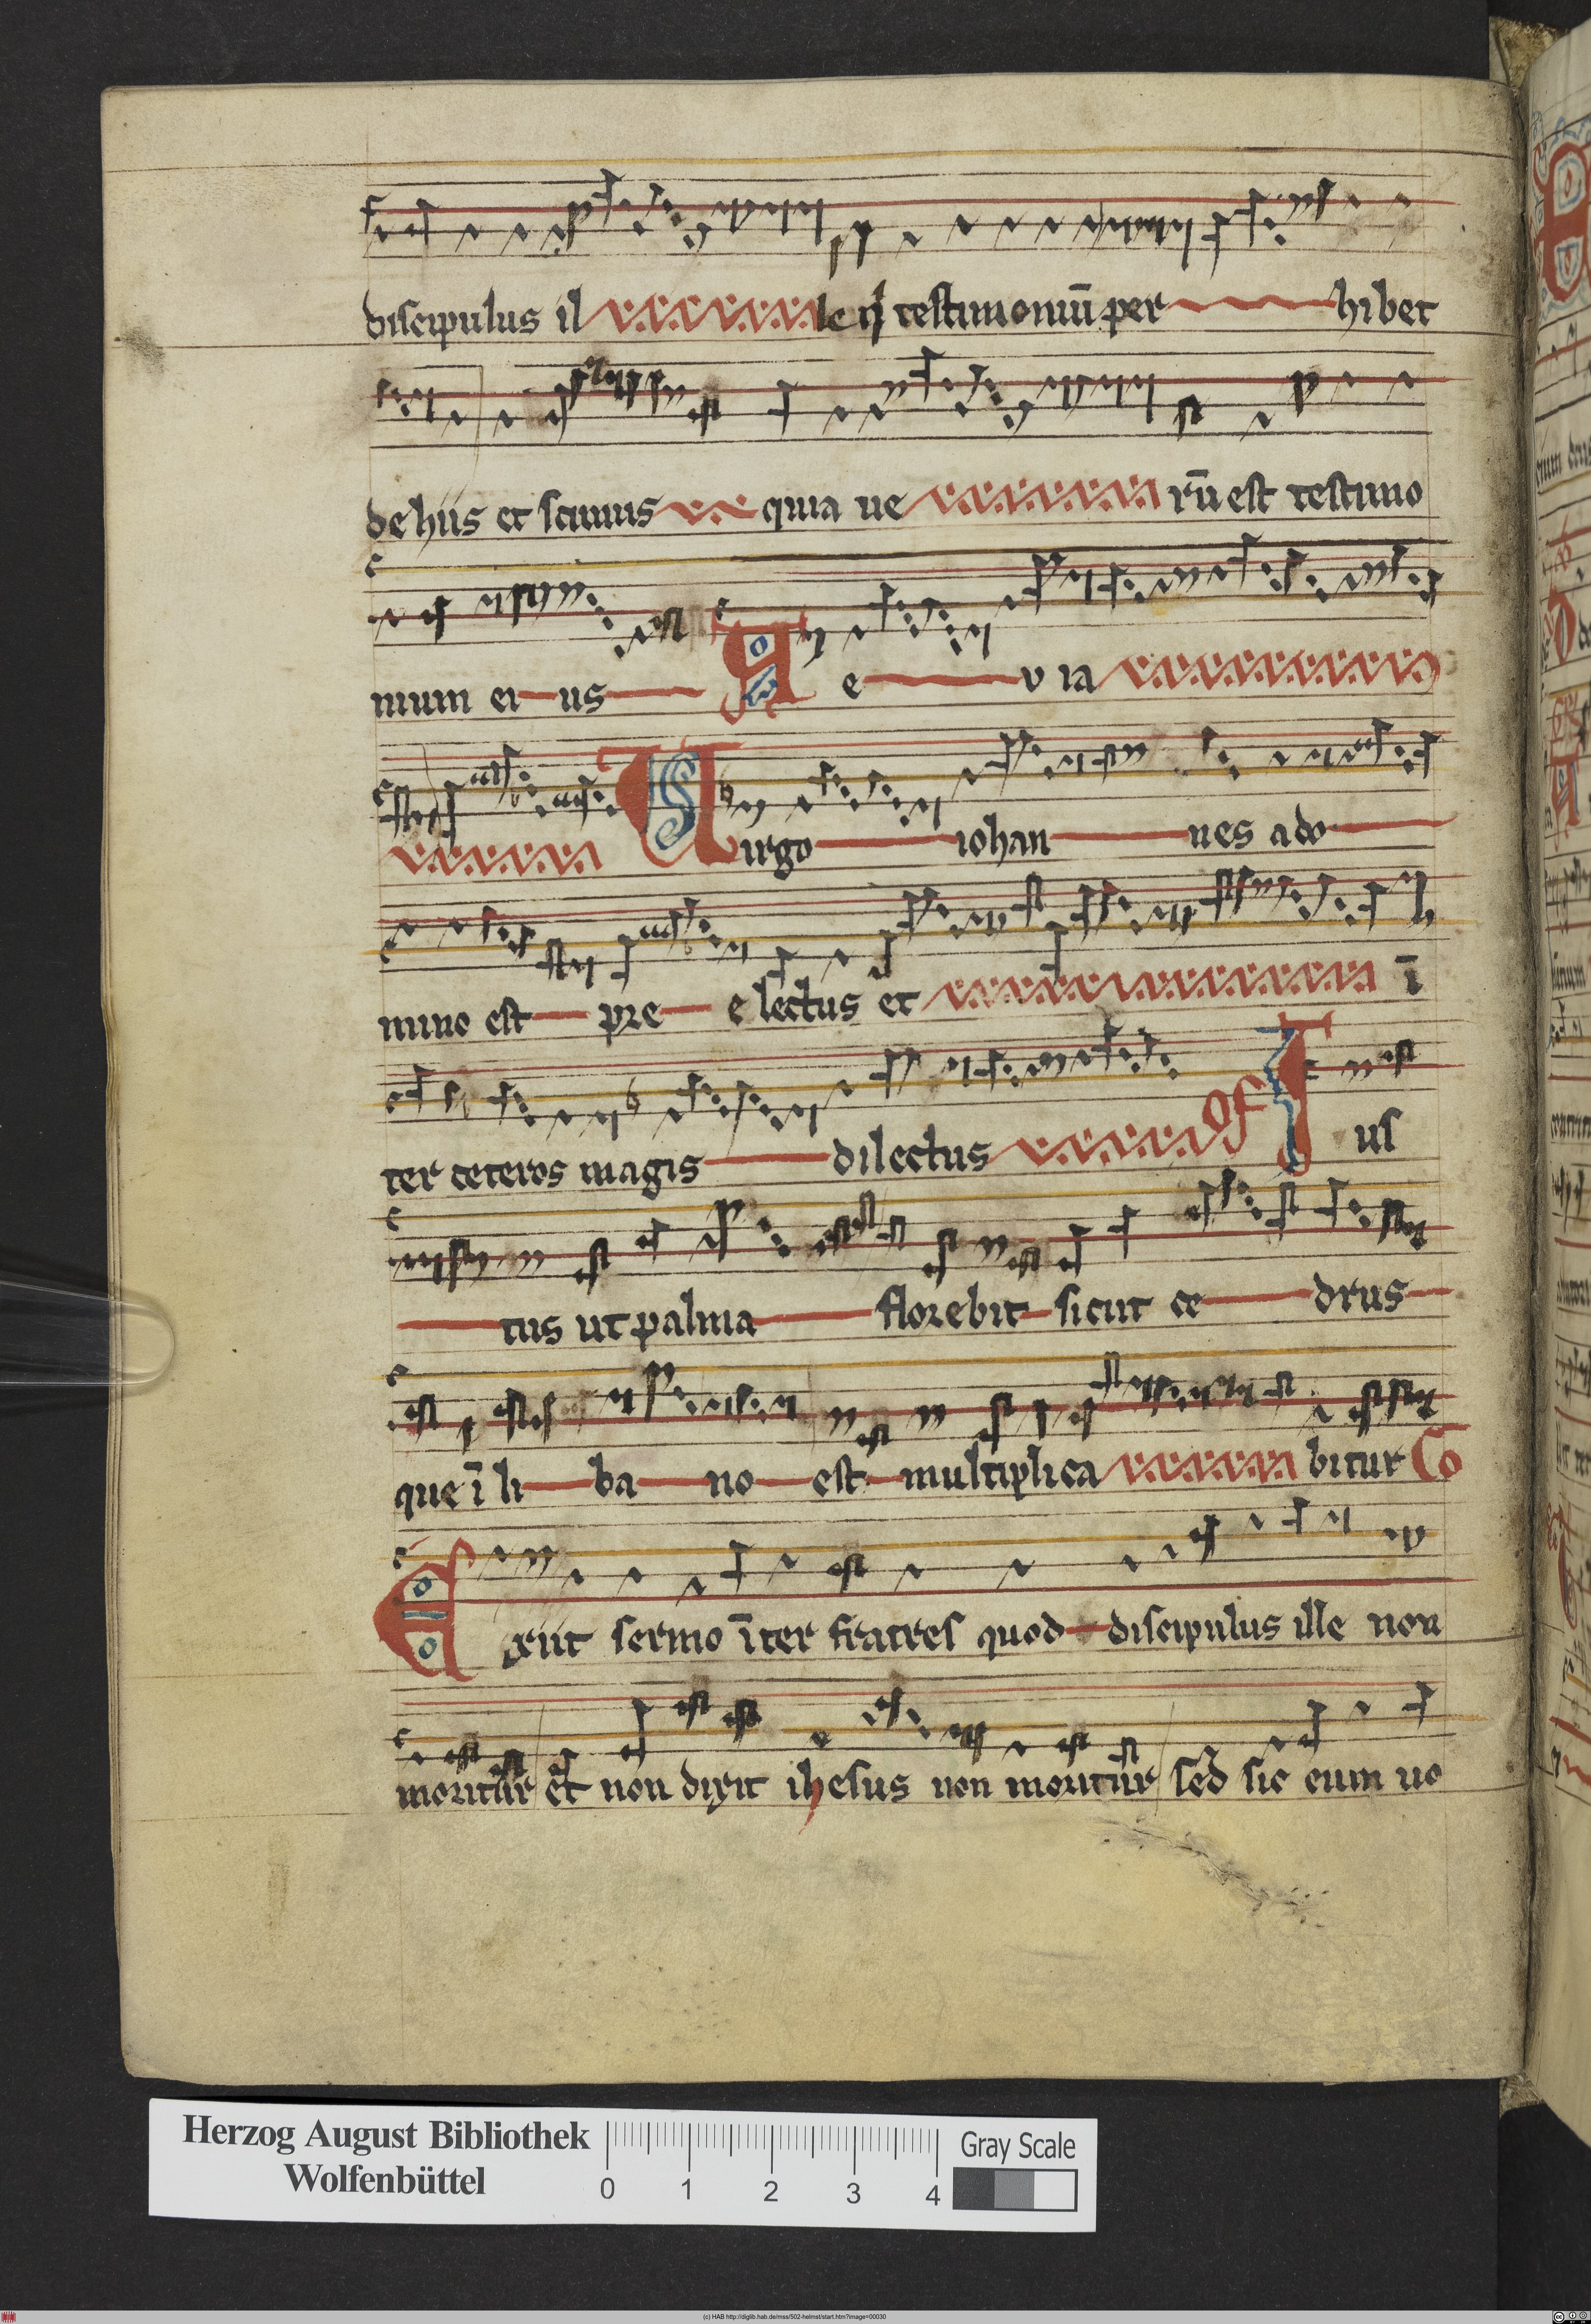 discipulus il le q testimoniū per hibet
de hiis et scimus quia ue rū est testimo
nium ei us A e v ia
Uirgo iohan nes a do
mino est pre e lectus et ī
ter ceteros magis dilectus Of Ius
tus ut palma florebit sicut ce drus
que ī li ba no est multiplica bitur Co
Exiit sermo īter fratres quod discipulus ille non
moritur et non dixit ihesus non moritur sed sic eum uo
Herzog August Bibliothek
Wolfenbüttel
0 1 2 3 4
Gray Scale
(c) HAB http://diglib.hab.de/mss/502-helmst/start.htm?image=00030